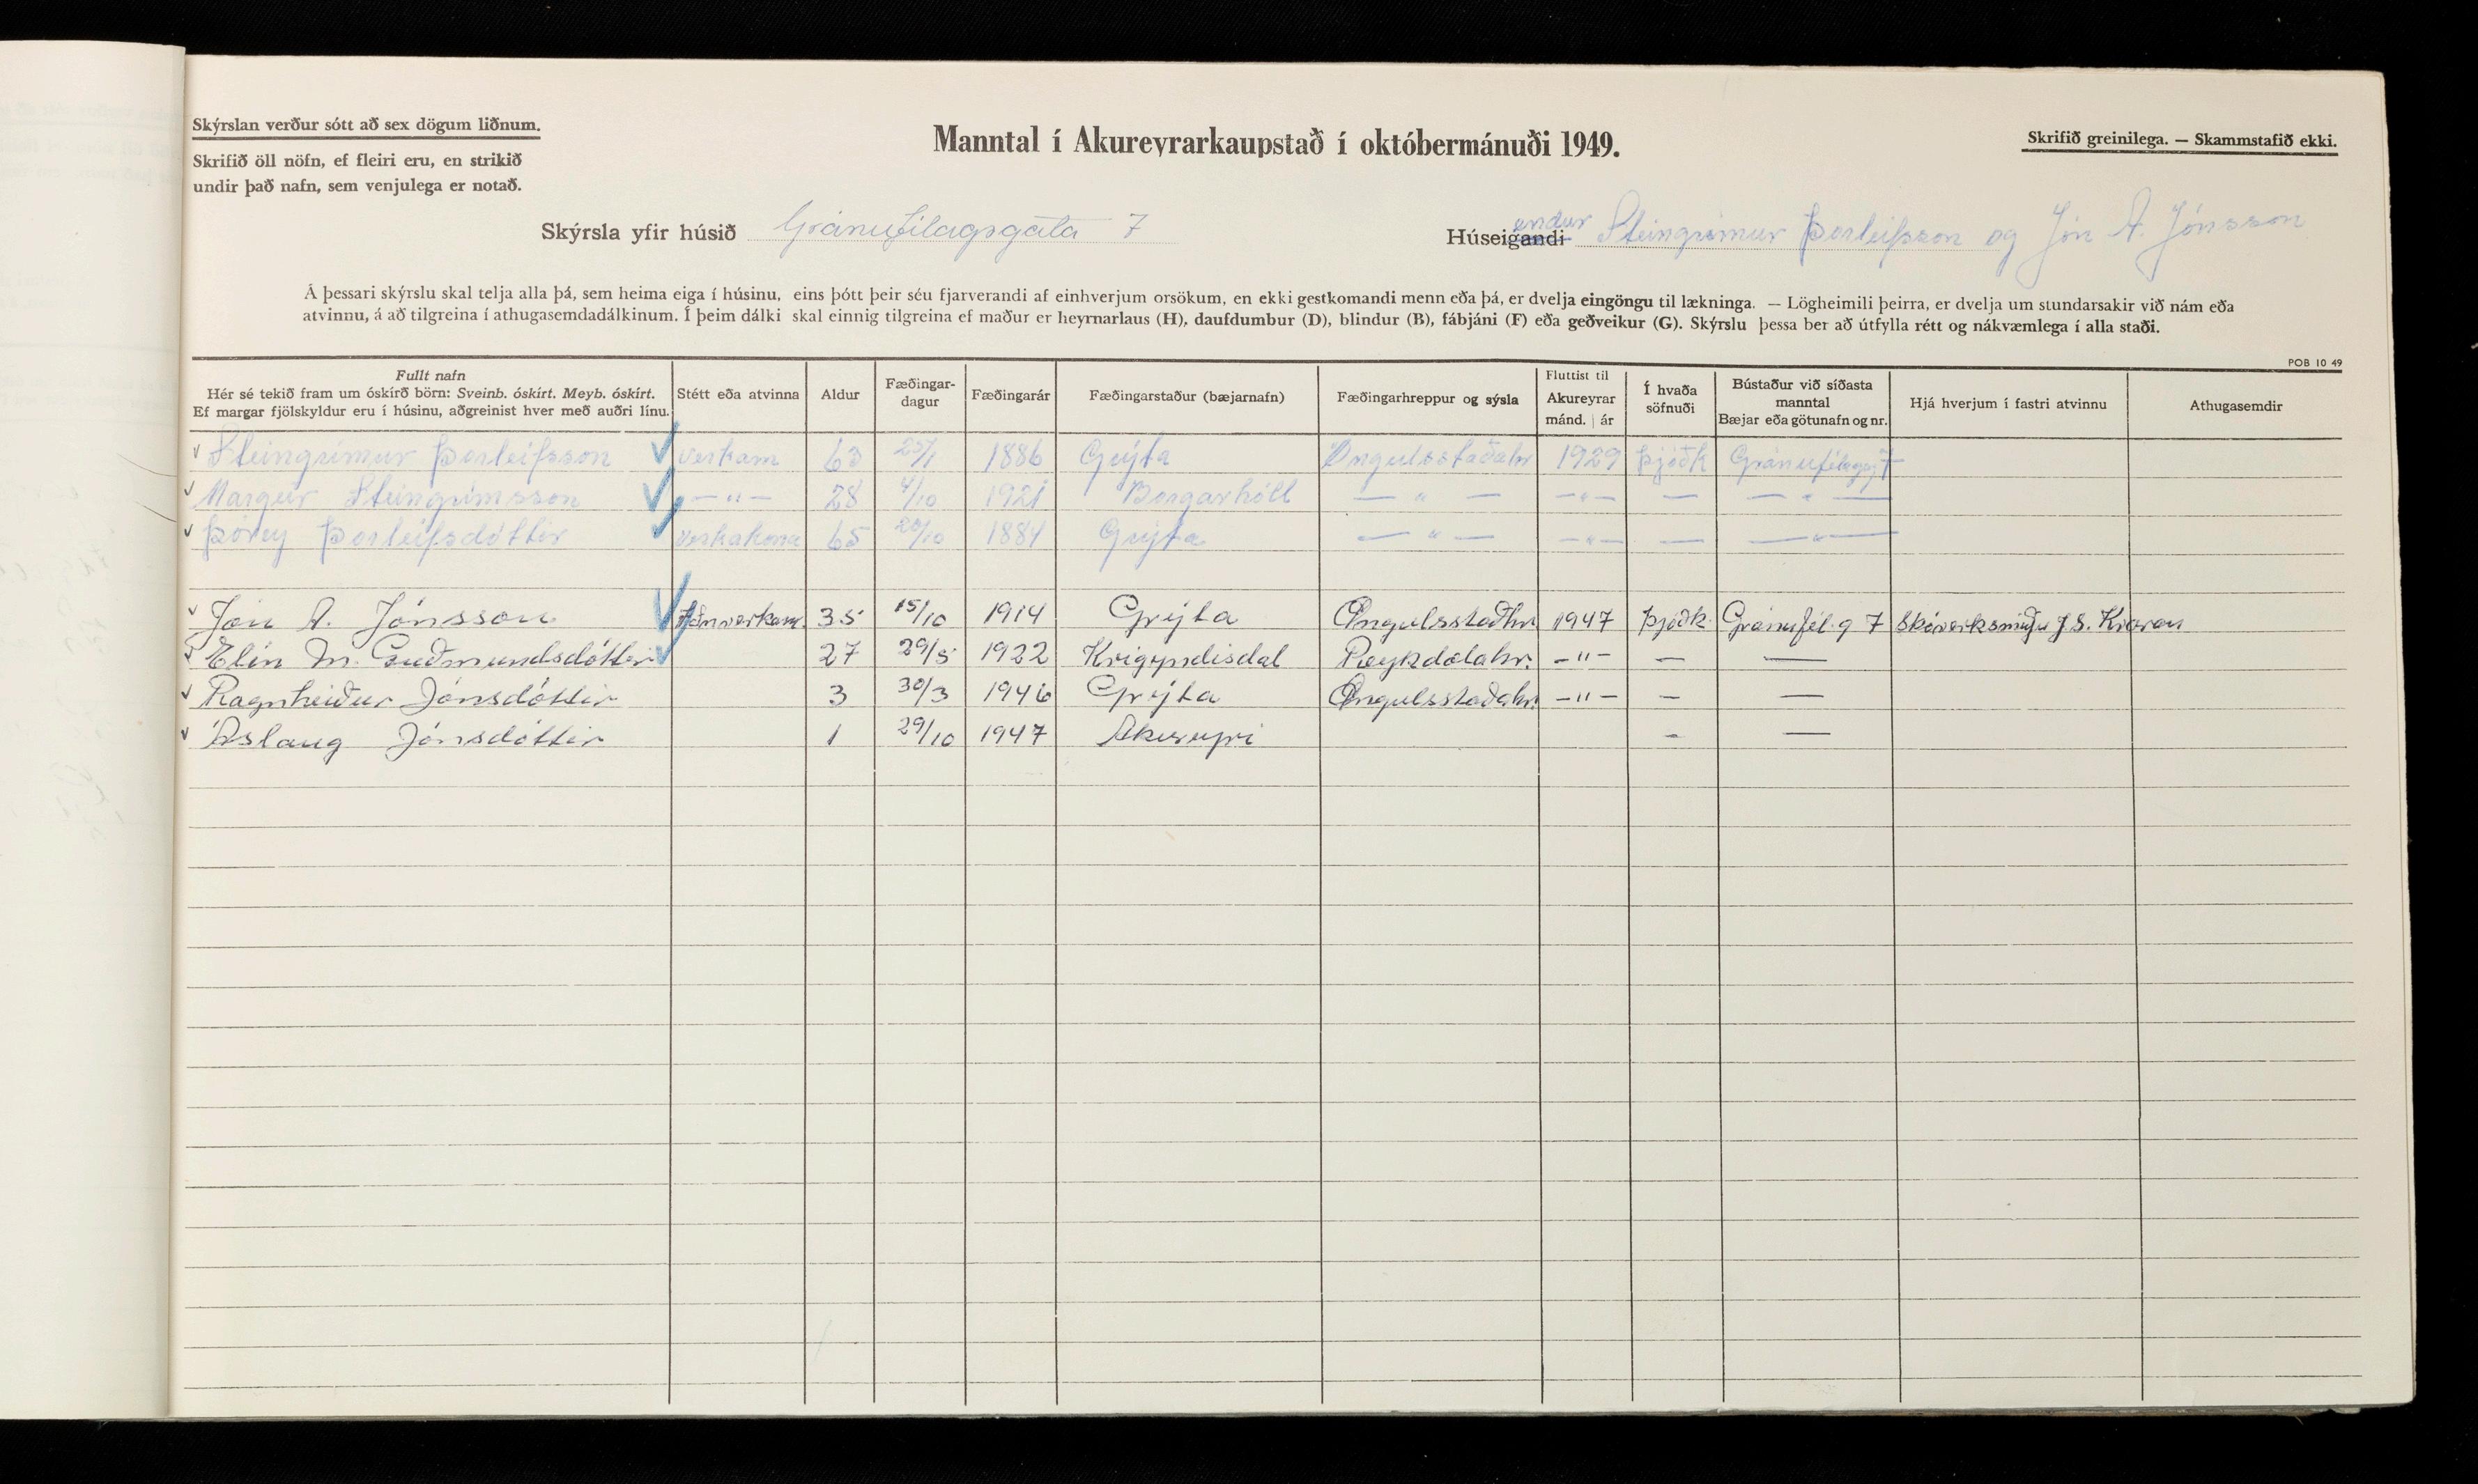 Skýrslan verður sótt að sex dögum liðnum.
Skrifið öll nöfn, ef fleiri eru, en strikið
undir það nafn, sem venjulega er notað.
Manntal í Akureyrarkaupstað í októbermánuði 1949.
Skrifið greinilega. — Skammstafið ekki.
Skýrsla yfir húsið Gránufélagsgata 7
Húseigandi endur Steingrímur Þorleifsson og Jón A. Jónsson
Á þessari skýrslu skal telja alla þá, sem heima eiga í húsinu, eins þótt þeir séu fjarverandi af einhverjum orsökum, en ekki gestkomandi menn eða þá, er dvelja eingöngu til lækninga. — Lögheimili þeirra, er dvelja um stundarsakir við nám eða
atvinnu, á að tilgreina í athugasemdadálkinum. Í þeim dálki skal einnig tilgreina ef maður er heyrnarlaus (H), daufdumbur (D), blindur (B), fábjáni (F) eða geðveikur (G). Skýrslu þessa ber að útfylla rétt og nákvæmlega í alla staði.
POB 10 49
Fullt nafn
Hér sé tekið fram um óskírð börn: Sveinb. óskírt. Meyb. óskírt.
Ef margar fjölskyldur eru í húsinu, aðgreinist hver með auðri línu.
Stétt eða atvinna
Aldur
Fæðingar-
dagur
Fæðingarár
Fæðingarstaður (bæjarnafn)
Fæðingarhreppur og sýsla
Fluttist til
Akureyrar
mánd. | ár
Í hvaða
söfnuði
Bústaður við síðasta
manntal
Bæjar eða götunafn og nr.
Hjá hverjum í fastri atvinnu
Athugasemdir
Steingrímur Þorleifsson verkam 63 1886 Grýta Öngulsstaðahr 1929 þjóðk Gránufélagsg 7
Margeir Steingrímsson — " — 28 4/10 1921 Borgarhóll — " — — " — — — " —
Þórey Þorleifsdóttir verkakona 65 20/10 1884 Grýta — " — — " — — — " —
Jón A. Jónsson Iðnverkam. 35 15/10 1914 Grýta Öngulsstaðhr 1947 þjóðk. Gránufél.g 7 Skóverksmiðju J.S. Kvaran
Elín M. Guðmundsdóttir 27 29/5 1922 Kvígyndisdal Reykdælahr. — " — — —
Ragnheiður Jónsdóttir 3 30/3 1946 Grýta Öngulsstaðahr. — " — — —
Áslaug Jónsdóttir 1 29/10 1947 Akureyri — —